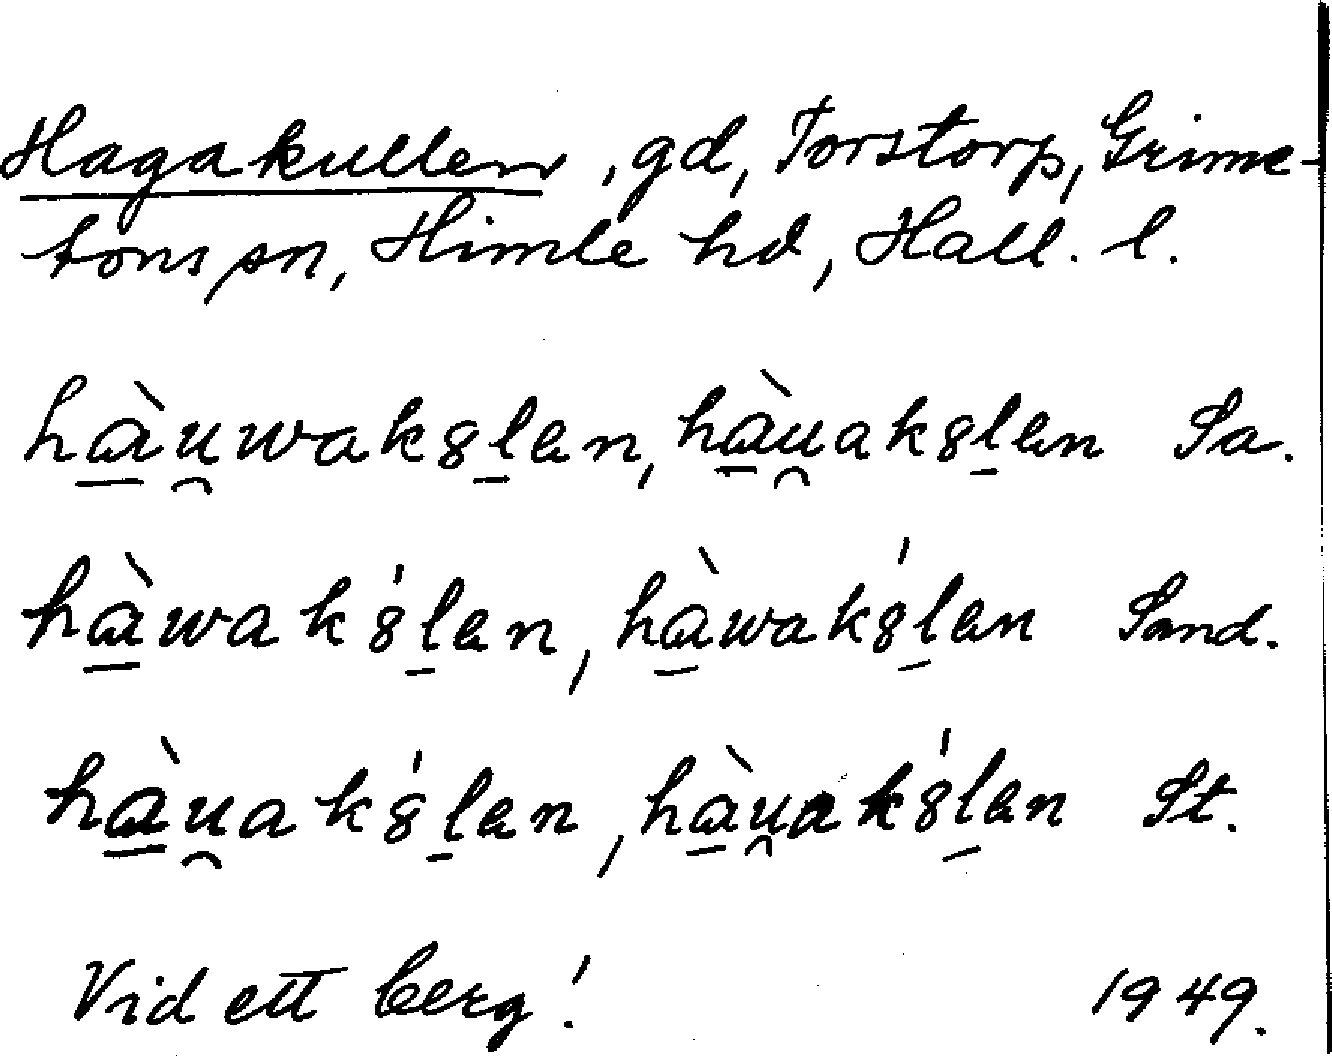 Hagakullen, gd, Torstorp, Grime-
tons sn, Himle hd, Hall. l.
hàu̯wak8l̠en, hàu̯ak8l̠en Sa.
hàwak8́l̠en, hàwak8́l̠en Sand.
hàu̯ak8́l̠en, hàu̯ak8́l̠en St.
Vid ett berg! 1949.